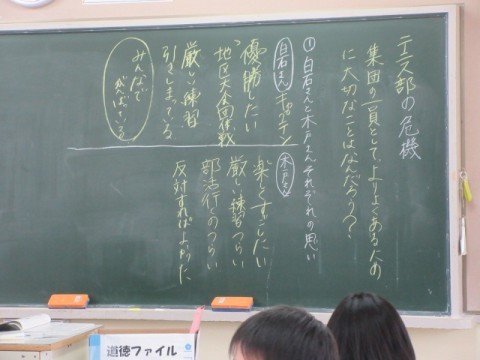 テニス部の危機
集団の一員として、よりよくある人の
に大切なことはなんだろう?
①白石さんと木戸さんそれぞれの思い
白石さん キャプテン
優勝したい
地区大会団体戦
厳しい練習
引きしまっている
みんなで
がんばっている
木戸さん
楽しくすごしたい
厳しい練習つらい
部活行くのつらい
反対すればよかった
道徳ファイル